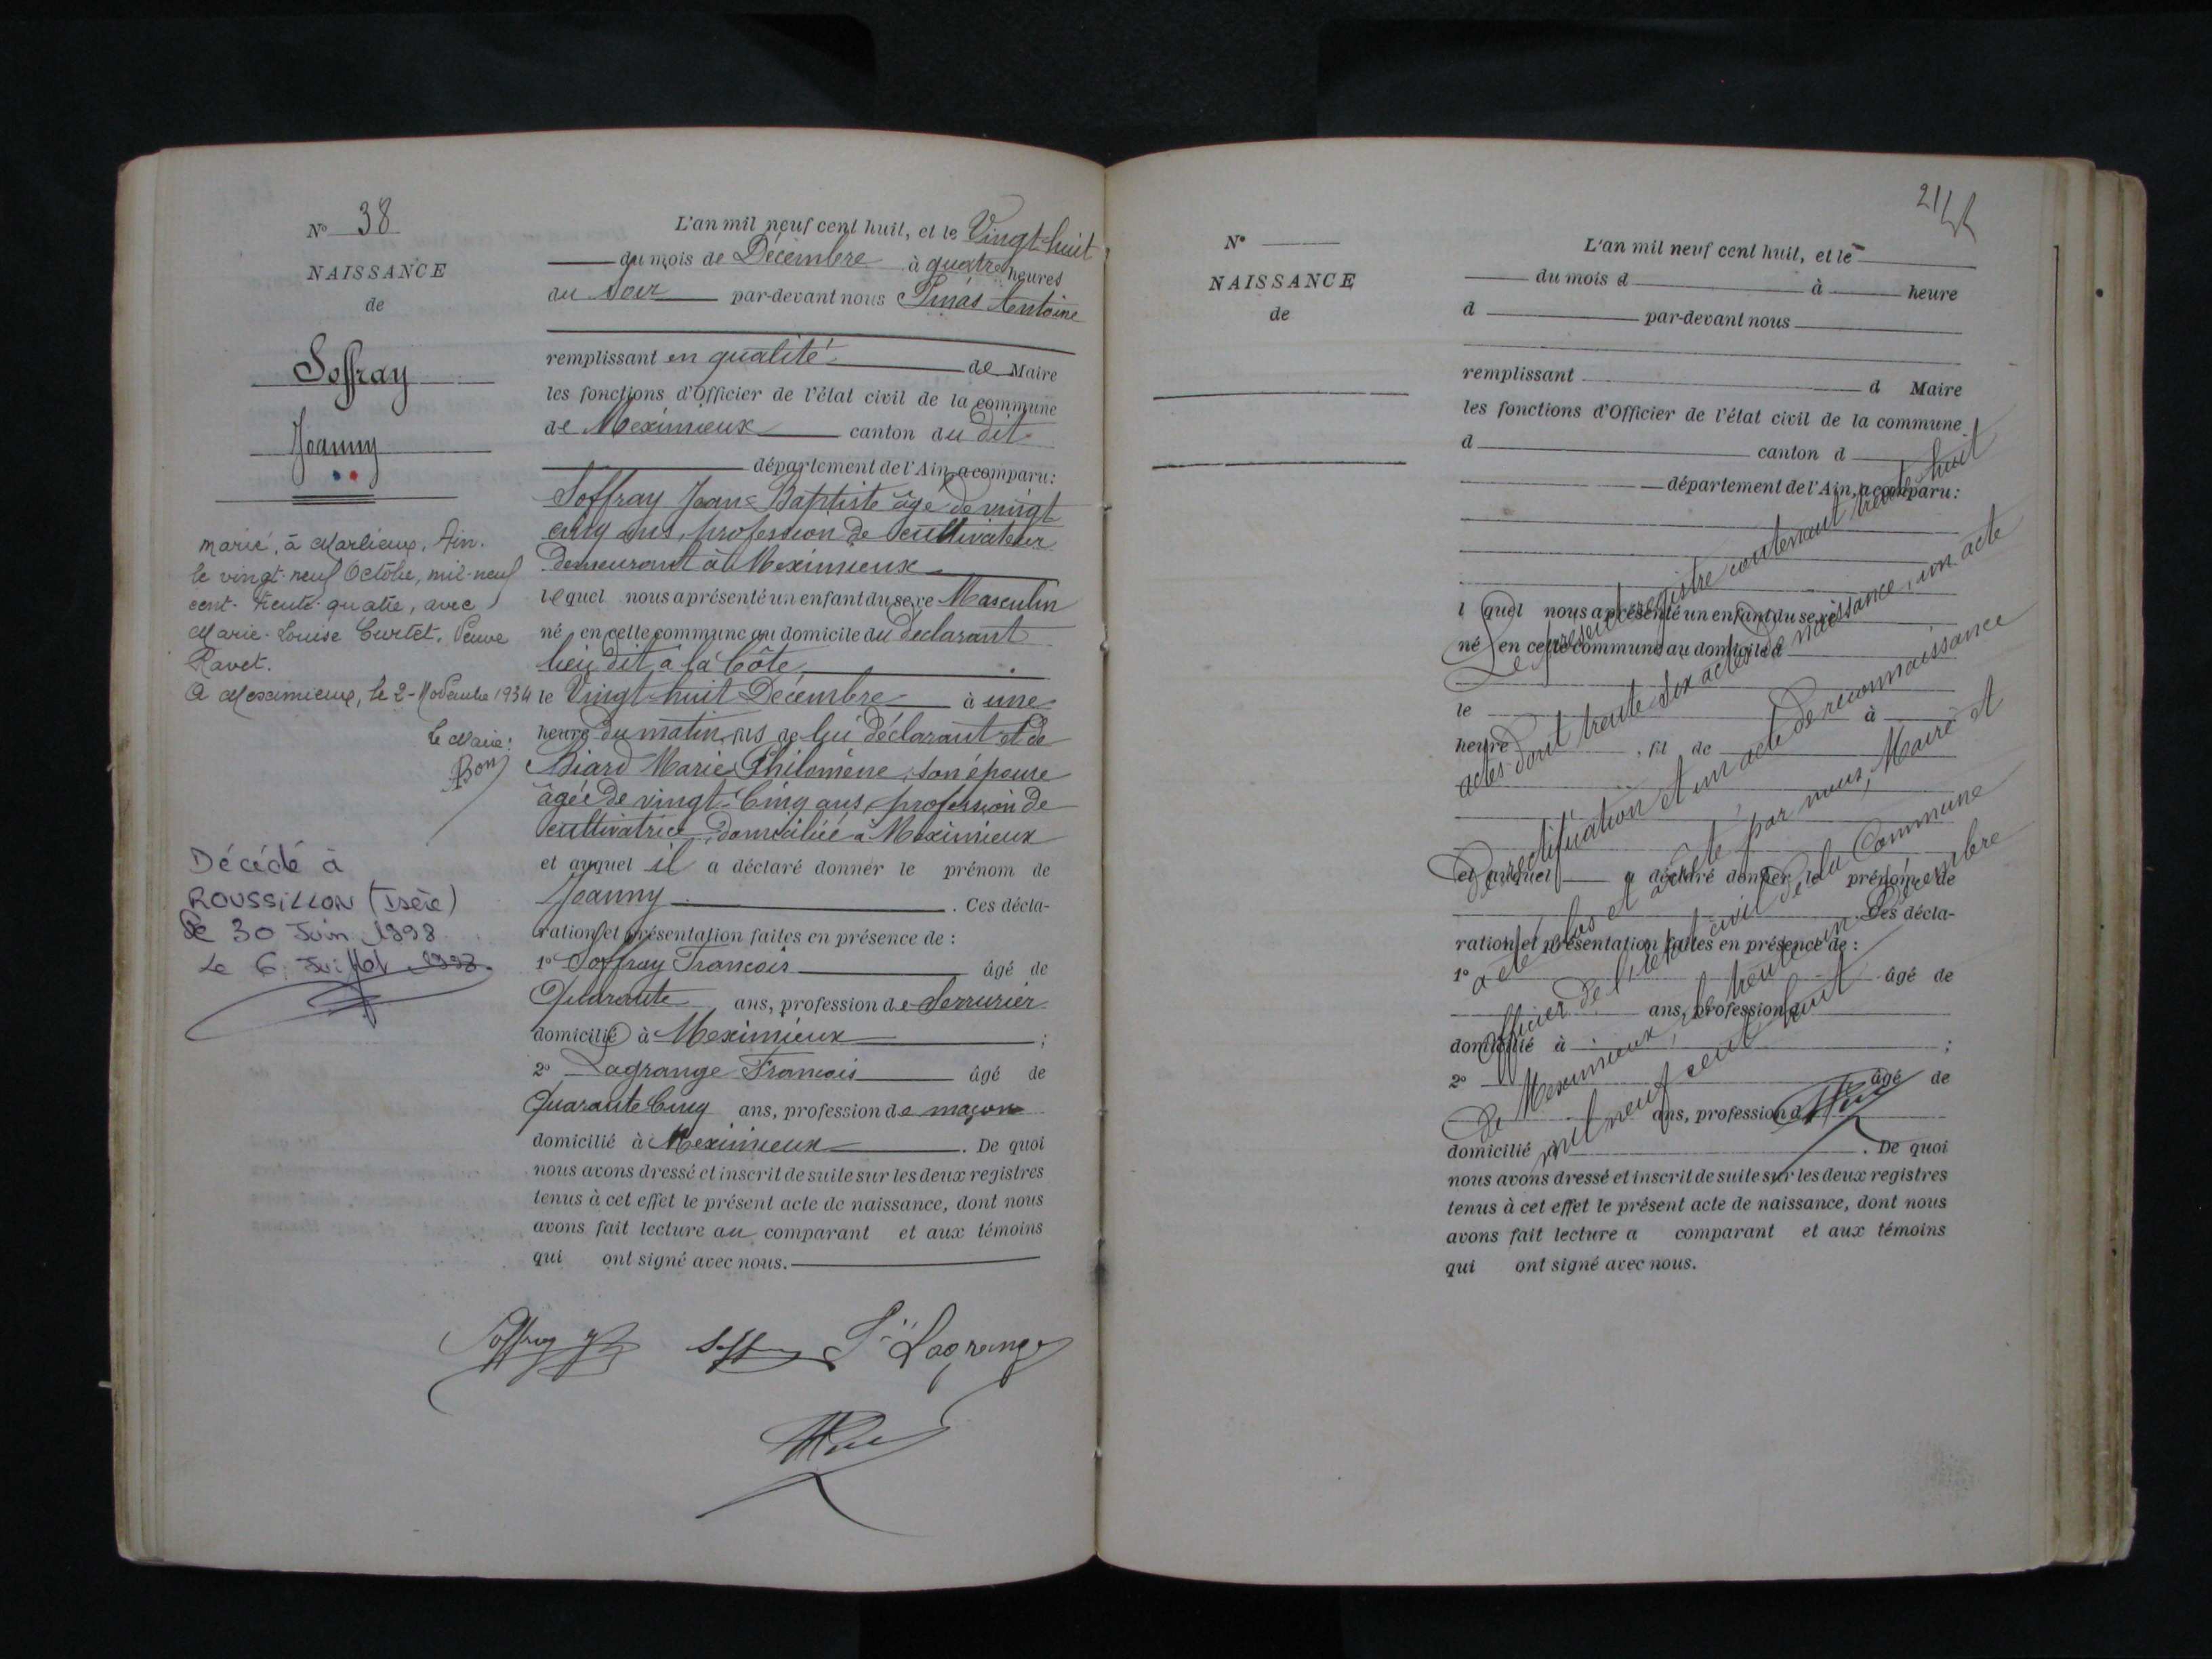 N° 38
NAISSANCE
de
Soffray
Joanny
marié, à Marlieux, Ain.
le vingt-neuf Octobre, mil-neuf
cent-trente-quatre, avec
Marie-Louise Curtet, Veuve
Ravet.
A Meximieux, le 2-Novembre 1934
Le Maire:
Bon
Décédé à
ROUSSILLON (Isère)
le 30 Juin 1998
Le 6 Juillet 1998.
L'an mil neuf cent huit, et le Vingt-huit
du mois de Décembre à quatre heures
du Soir par-devant nous Antoine
remplissant en qualité de Maire
les fonctions d'Officier de l'état civil de la commune
de Meximieux canton du dit
département de l'Ain, a comparu:
Soffray Jean-Baptiste âgé de vingt
cinq ans, profession de cultivateur
demeurant à Meximieux
lequel nous a présenté un enfant du sexe Masculin
né en cette commune au domicile du déclarant
lieu dit à la Côte
le Vingt-huit Décembre à une
heure du matin, fils de lui déclarant et de
Biard Marie Philomène, son épouse
âgée de vingt-Cinq ans, profession de
cultivatrice, domiciliée à Meximieux
et auquel il a déclaré donner le prénom de
Joanny. Ces décla-
ration et présentation faites en présence de :
1° Soffray Francois âgé de
Quarante ans, profession de Serrurier
domicilié à Meximieux ;
2° Lagrange Francois âgé de
Quarante Cinq ans, profession de maçon
domicilié à Meximieux. De quoi
nous avons dressé et inscrit de suite sur les deux registres
tenus à cet effet le présent acte de naissance, dont nous
avons fait lecture au comparant et aux témoins
qui ont signé avec nous.
Soffray Lagrange
N°
NAISSANCE
de
L'an mil neuf cent huit, et le
du mois d à heure
d par-devant nous
remplissant d Maire
les fonctions d'Officier de l'état civil de la commune
d canton d
département de l'Ain, a comparu:
l quel nous a présenté un enfant du sexe
né en cette commune au domicile d
le à
heure , fil de
et auquel a déclaré donner le prénom de
. Ces décla-
ration et présentation faites en présence de :
1° âgé de
ans, profession d
domicilié à ;
2° âgé de
ans, profession d
domicilié . De quoi
nous avons dressé et inscrit de suite sur les deux registres
tenus à cet effet le présent acte de naissance, dont nous
avons fait lecture a comparant et aux témoins
qui ont signé avec nous.
Le présent registre contenant trente huit
actes dont trente six actes de naissance, un acte
de rectification et un acte de reconnaissance
a été clos et arrêté par nous, Maire et
Officier de l'état civil de la Commune
de Meximieux, le trente un Décembre
mil neuf cent huit